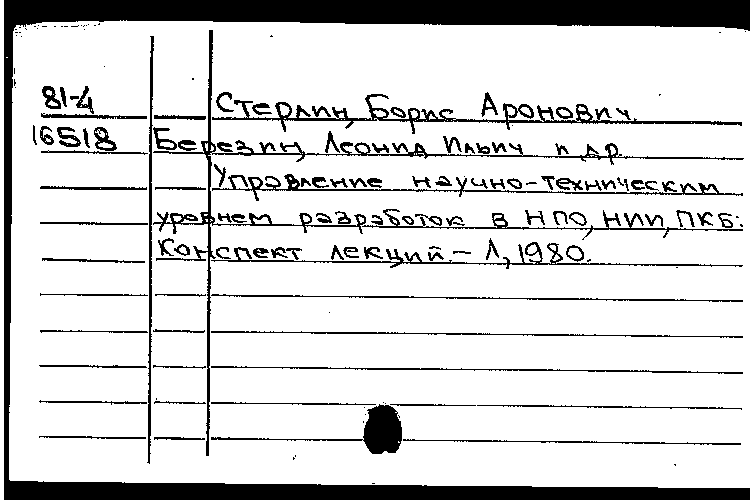 81-4 Стерлин, Борис Аронович.
16518 Березин, Леонид Ильич и др.
Управление научно-техническим
уровнем разработок в НПО, НИИ, ПКБ:
Конспект лекций. - Л, 1980.